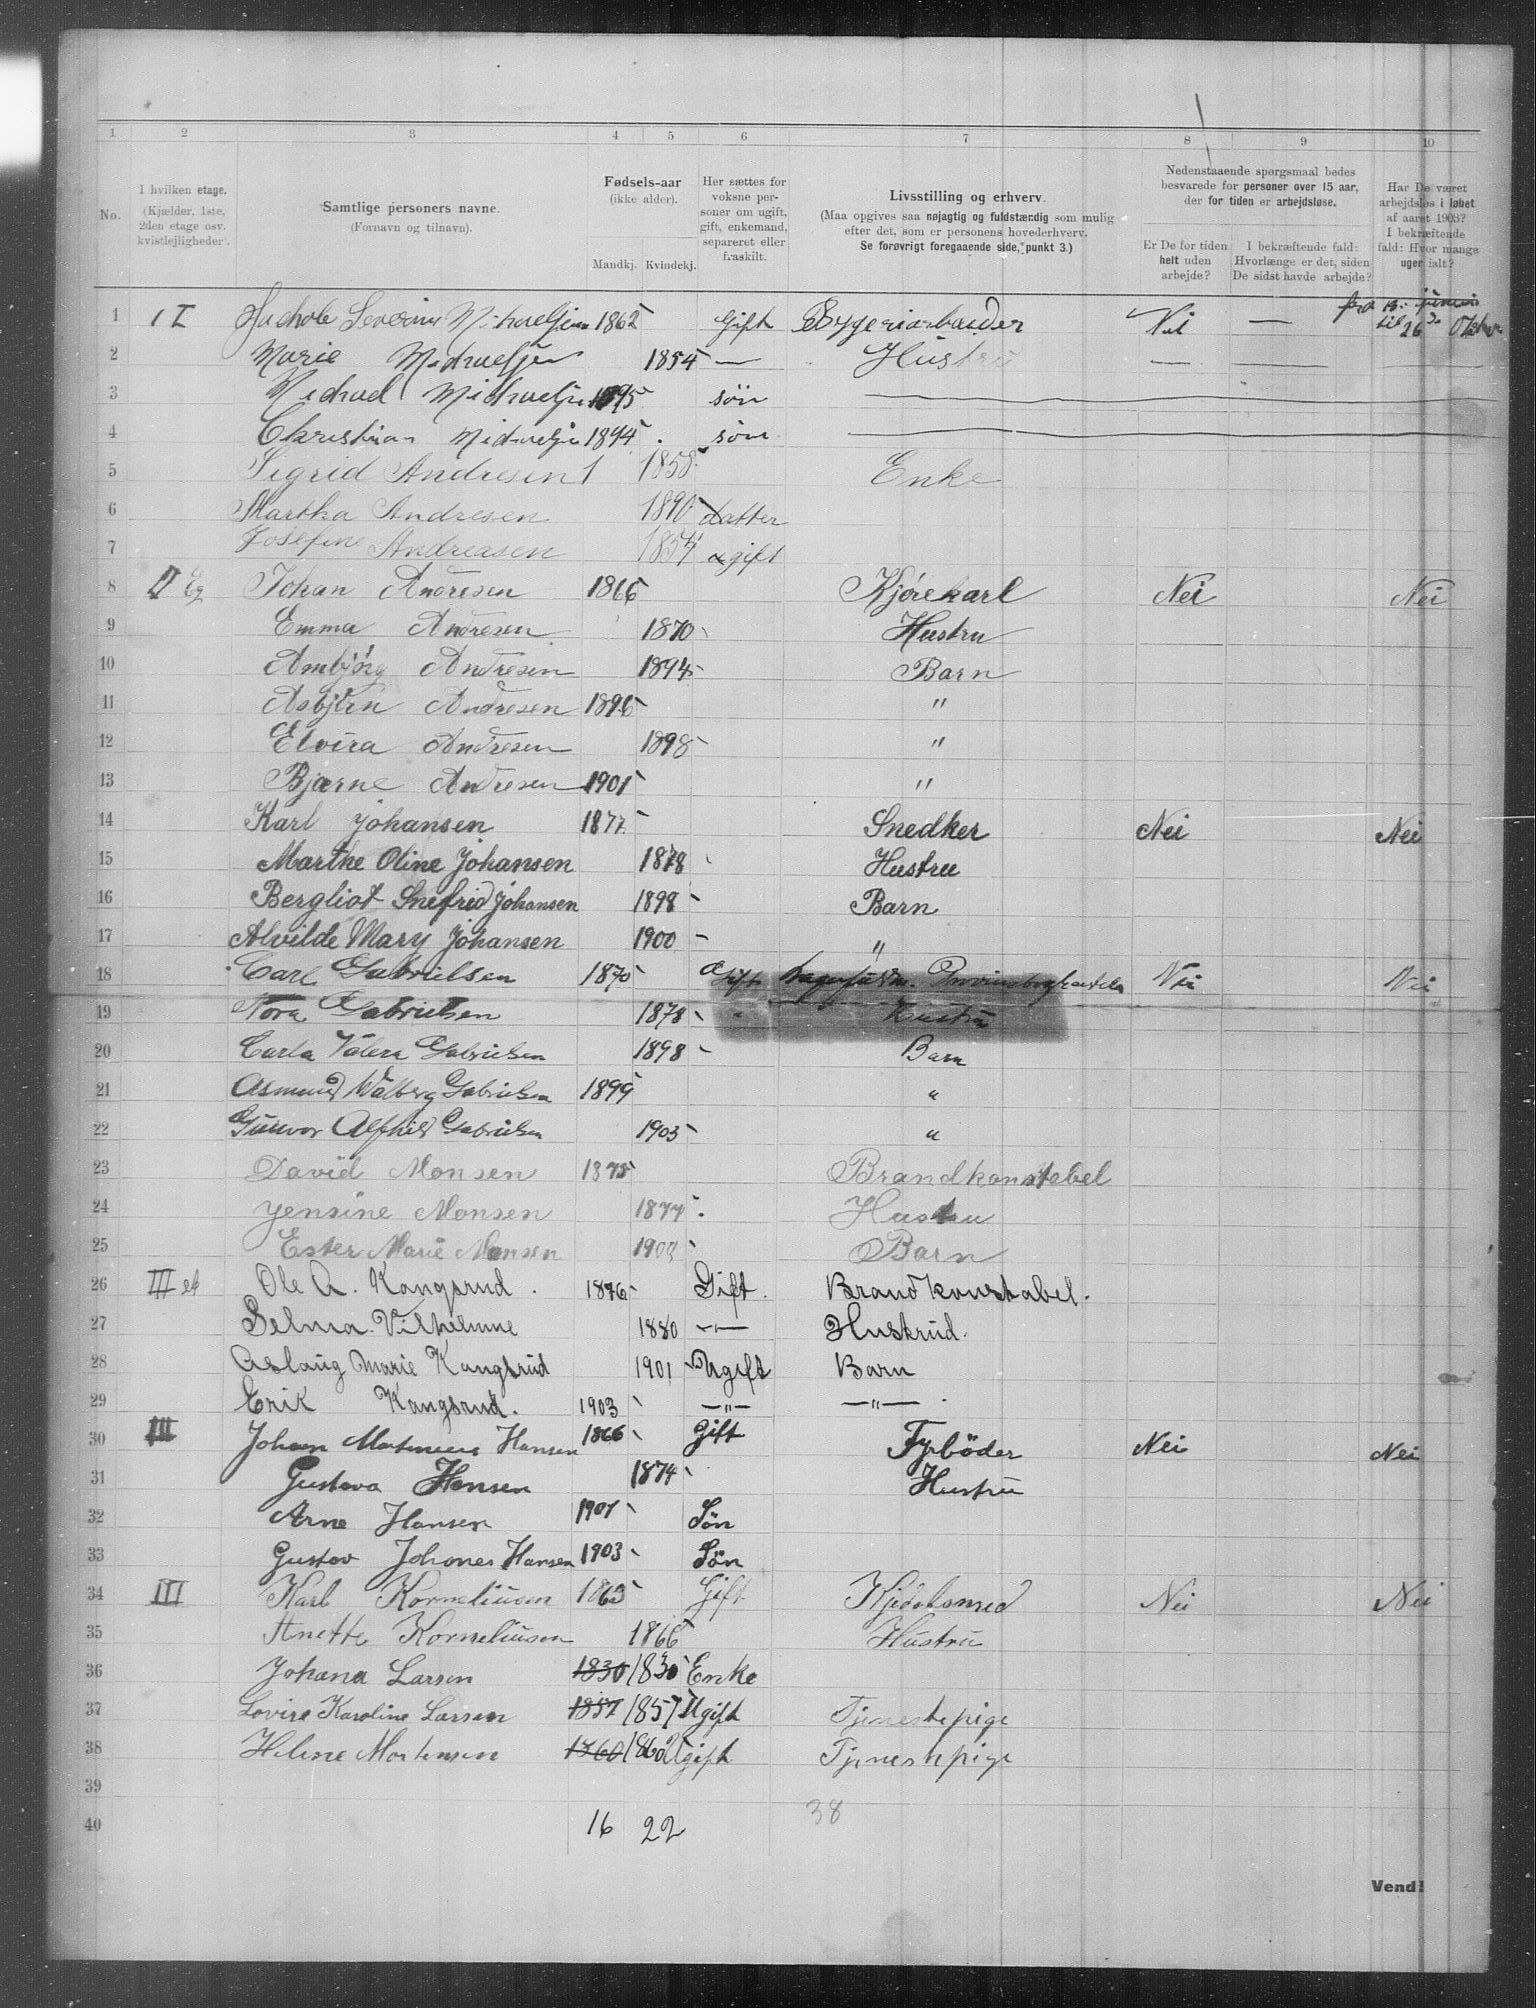 1 2 3 4 5 6 7 8 9 10
No. I hvilken etage. (Kjælder, 1ste, 2den etage osv. kvistlejligheder). Samtlige personers navne. (Fornavn og tilnavn). Fødsels-aar (ikke alder). Mandkj. Kvindekj. Her sættes for voksne personer om ugift, gift, enkemand, separeret eller fraskilt. Livsstilling og erhverv. (Maa opgives saa nøjagtig og fuldstændig som mulig efter det, som er personens hovederhverv. Se forøvrigt foregaaende side, punkt 3.) Nedenstaaende spørgsmaal bedes besvarede for personer over 15 aar, der for tiden er arbejdsløse. Er De for tiden helt uden arbejde? I bekræftende fald: Hvorlænge er det, siden De sidst havde arbejde? Har De været arbejdsløs i løbet af aaret 1903? I bekræftende fald: Hvor mange uger ialt?
1 I Severin 1862 Gift Nei — fra 15. til 26
2 Marie Michaelsen 1854 — Hustru — — —
3 Michael Michaelsen 1895 sön
4 Christian Michaelsen 1894 sön
5 Sigrid Andresen 1858 Enke
6 Martha Andresen 1890 datter
7 Josefine Andreasen 1854 ugift
8 II Johan Andresen 1866 Kjørekarl Nei Nei
9 Emma Andresen 1870 Hustru
10 Ambjörg Andresen 1894 Barn
11 Asbjörn Andresen 1896 "
12 Elvira Andresen 1898 "
13 Bjarne Andresen 1901 "
14 Karl Johansen 1877 Snedker Nei Nei
15 Marthe Oline Johansen 1878 Hustru
16 Bergliot Snefrid Johansen 1898 Barn
17 Alvilde Mary Johansen 1900 "
18 Carl Gabrielsen 1870 Gift Nei Nei
19 Nora Gabrielsen 1878 " Hustru
20 Carla Valera Gabrielsen 1898 Barn
21 Asmund Walberg Gabrielsen 1899 "
22 Gunvor Alfhild Gabrielsen 1903 "
23 David Monsen 1875 Brandkonstabel
24 Jensine Monsen 1877 Hustru
25 Ester Marie Monsen 1903 Barn
26 III Ole A. Kangsrud. 1876 Gift. Brandkonstabel.
27 Selma Vilhelmine 1880 —"— Hustrud.
28 Aslaug Marie Kangsrud 1901 Ugift Barn
29 Erik Kangsrud. 1903 —"— —"—
30 III Johan Hansen 1866 Gift Fyrböder Nei Nei
31 Gustava Hansen 1874 Hustru
32 Arne Hansen 1901 Sön
33 Gustav Johanes Hansen 1903 Sön
34 III Karl Korneliusen 1863 Gift Nei Nei
35 Anette Korneliusen 1866 Hustru
36 Johana Larsen 1830 1830 Enke
37 Lovise Karoline Larsen 1857 1857 Ugift Tjenestepige
38 Helene Mortensen 1860 1860 Ugift Tjenestepige
39
40 16 22 38
Vend!